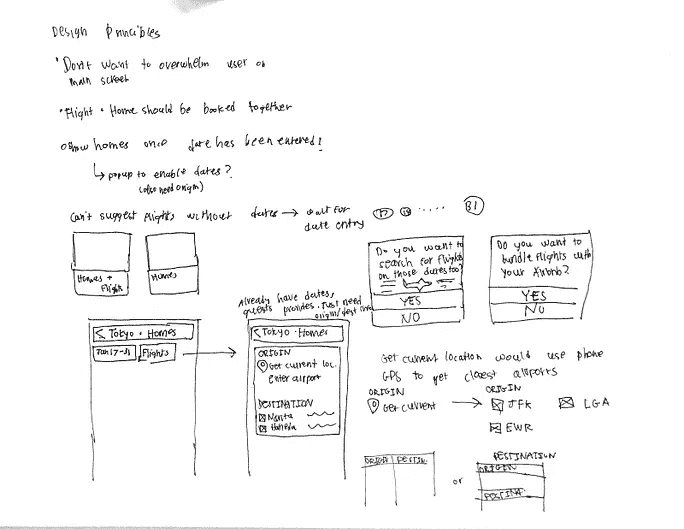 Design Principles
• Don't want to overwhelm user on
main screen
• Flight + Home should be booked together
• Show homes once date has been entered!
↳ popup to enable dates?
(also need origin)
Can't suggest flights without dates → wait for
date entry
17 18 ..... 31
Homes +
Flights
Homes
Do you want to
search for flights
on those dates too?
YES
NO
Do you want to
bundle flights with
your Airbnb?
YES
NO
Already have dates,
guests provided. Just need
origin/dest info
< Tokyo · Homes
Jan 17-31
Flights
< Tokyo · Homes
ORIGIN
Get current loc.
Enter airport
DESTINATION
Narita
Haneda
Get current location would use phone
GPS to get closest airports
ORIGIN
Get current
ORIGIN
JFK
LGA
EWR
ORIGIN
DESTIN
or
DESTINATION
ORIGIN
DESTINA